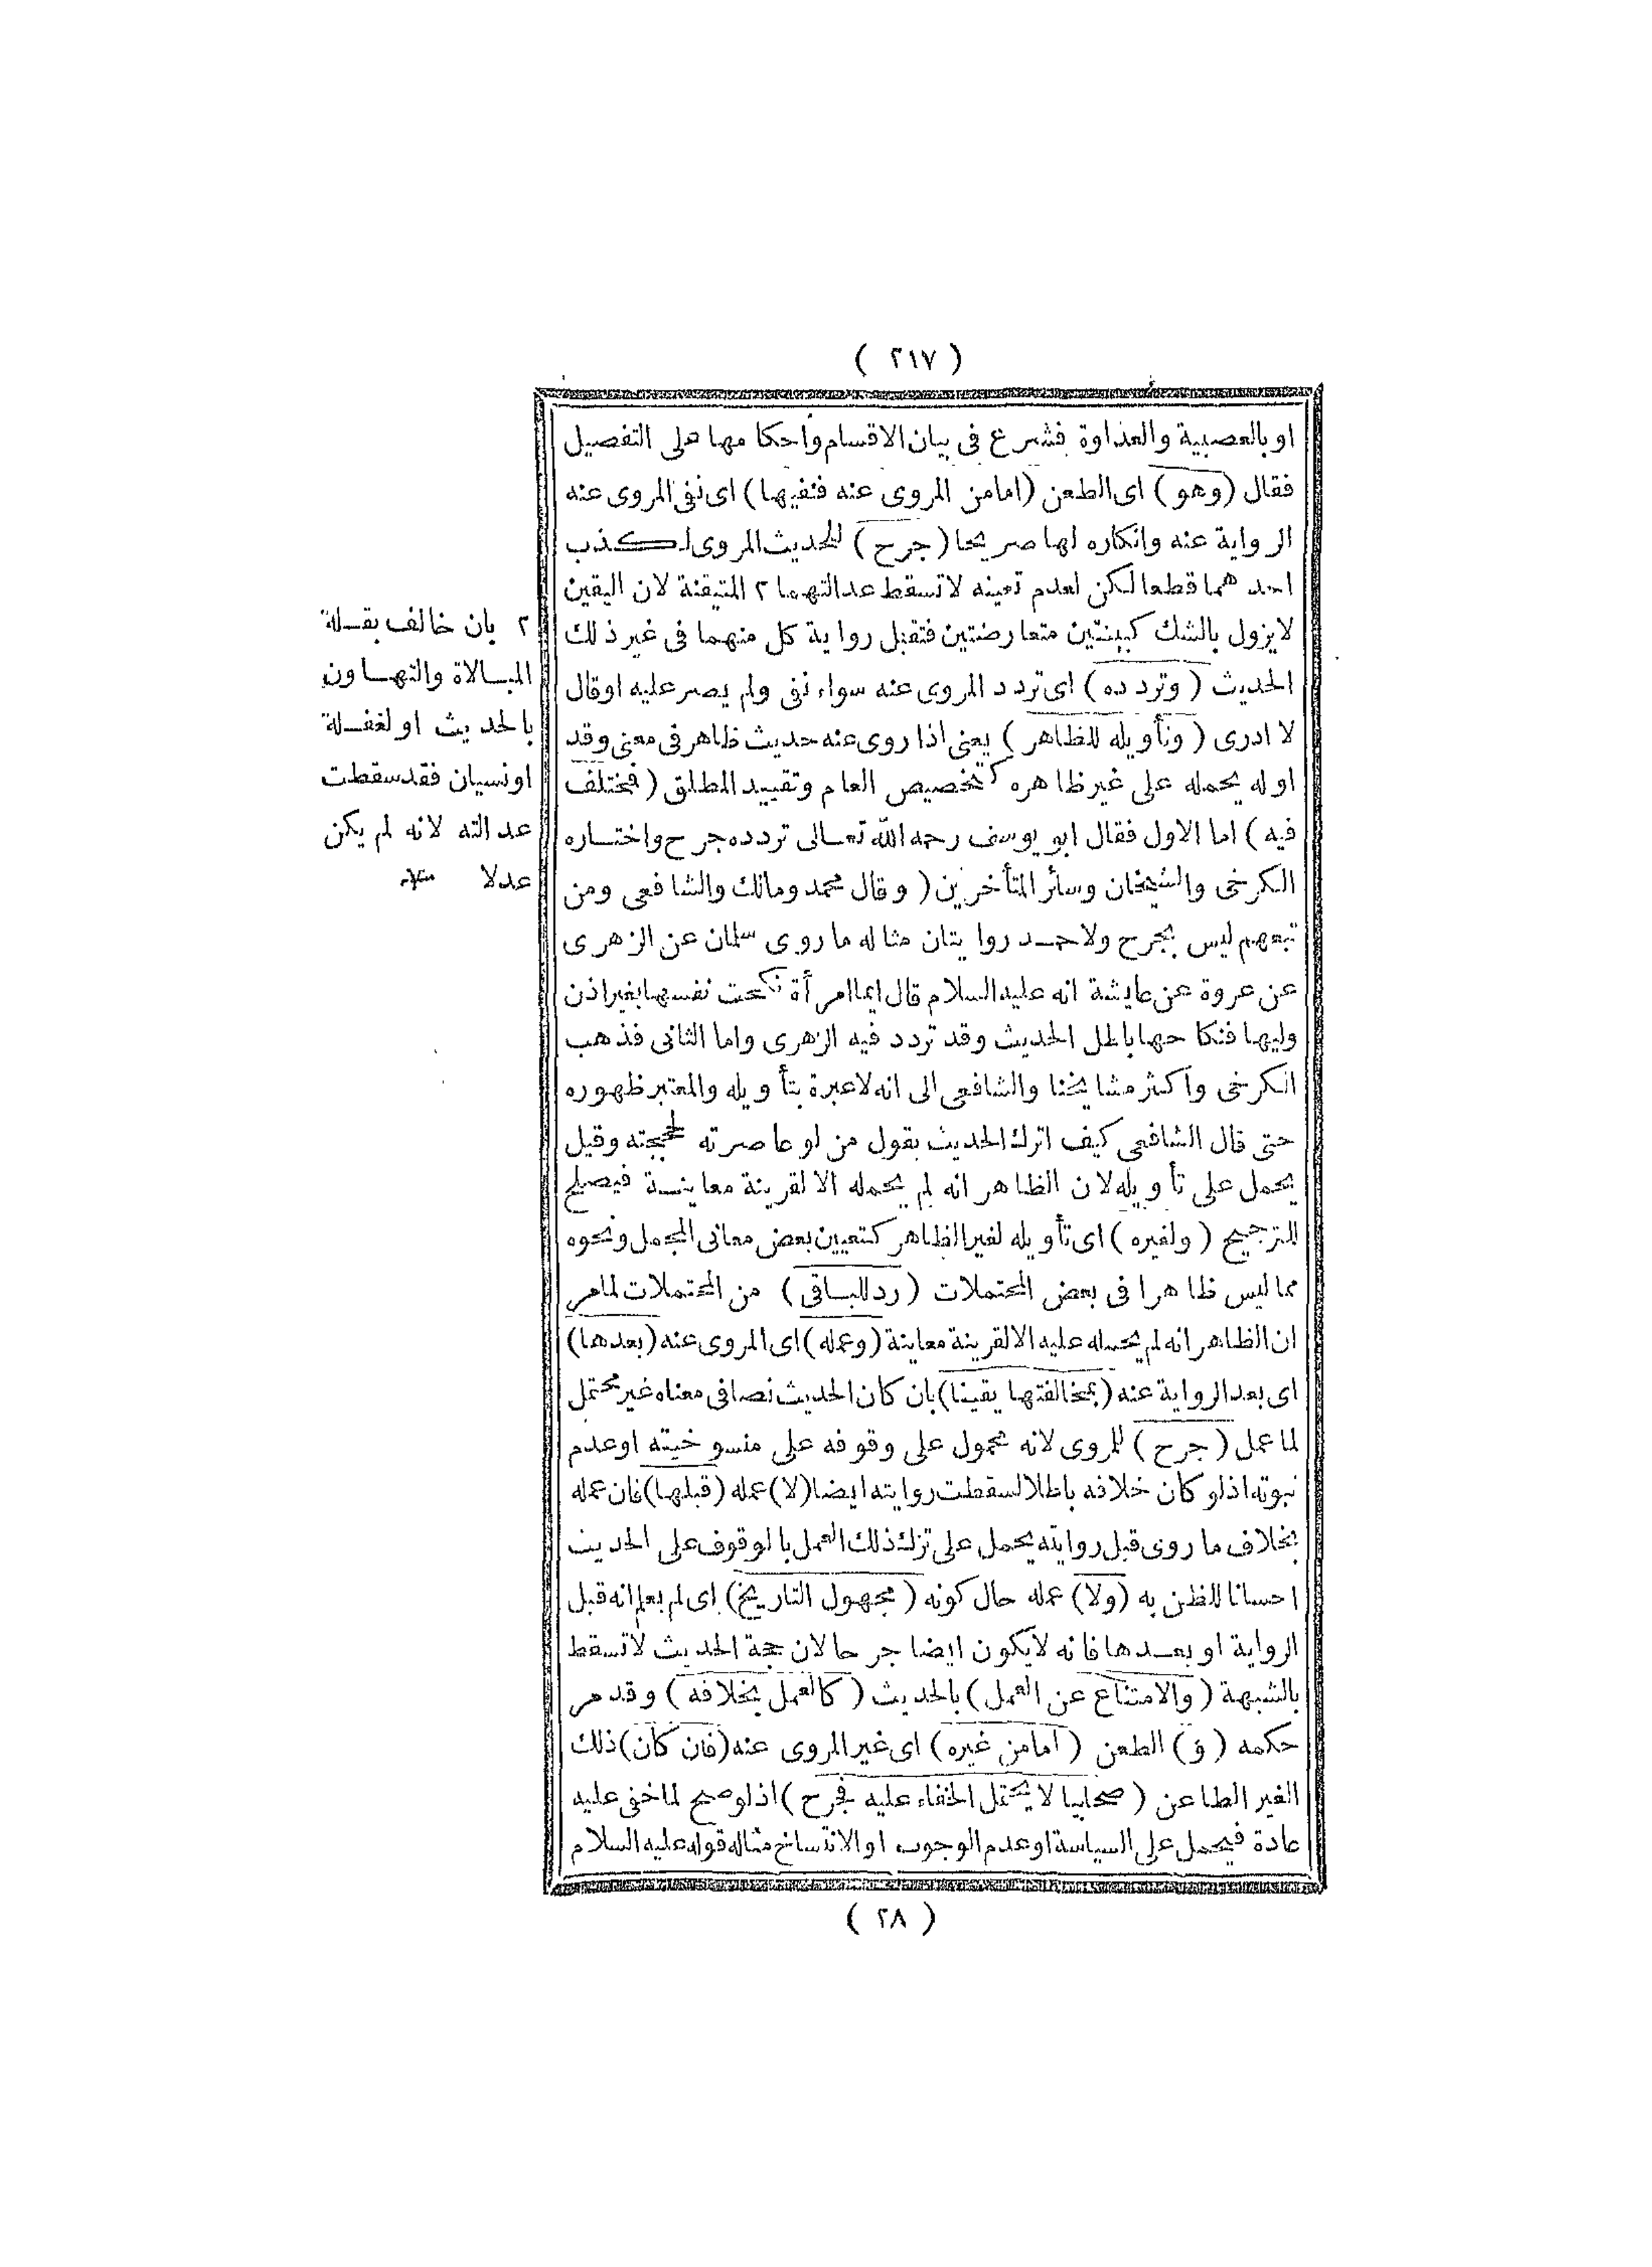 ( ٢١٧ )
او بالعصبية والعداوة فشرع فى بيان الاقسام واحكامها على التفصيل
فقال ( وهو ) اى الطعن ( امامن المروى عنه فنفيها ) اى نفى المروى عنه
الرواية عنه وانكاره لها صريحا ( جرح ) للحديث المروى لكذب
احدهما قطعا لكن لعدم تعينه لا تسقط عدالتهما ٢ المتيقنة لان اليقين
لا يزول بالشك كبينتين متعارضتين فتقبل رواية كل منهما فى غير ذلك
الحديث ( وتردده ) اى تردد المروى عنه سواء نفى ولم يصر عليه اوقال
لا ادرى ( وتأويله للظاهر ) يعنى اذا روى عنه حديث ظاهر فى معنى وقد
اوله يحمله على غير ظاهره كتخصيص العام وتقييد المطلق ( فمختلف
فيه ) اما الاول فقال ابو يوسف رحمه الله تعالى تردده جرح واختاره
الكرخى والشيخان وسائر المتأخرين ( وقال محمد ومالك والشافعى ومن
تبعهم ليس بجرح ولاحمد روايتان مثاله ما روى سلمان عن الزهرى
عن عروة عن عايشة انه عليه السلام قال ايما امرأة نكحت نفسها بغير اذن
وليها فنكاحها باطل الحديث وقد تردد فيه الزهرى واما الثانى فذهب
الكرخى واكثر مشايخنا والشافعى الى انه لاعبرة بتأويله والمعتبر ظهوره
حتى قال الشافعى كيف اترك الحديث بقول من لو عاصرته لحججته وقيل
يحمل على تأويله لان الظاهر انه لم يحمله الا لقرينة معاينة فيصلح
للترجيح ( ولغيره ) اى تأويله لغير الظاهر كتعيين بعض معانى المجمل ونحوه
مما ليس ظاهرا فى بعض المحتملات ( رد للباقى ) من المحتملات لمامر
ان الظاهر انه لم يحمله عليه الالقرينة معاينة ( وعمله ) اى المروى عنه ( بعدها )
اى بعد الرواية عنه ( بمخالفتها يقينا ) بان كان الحديث نصا فى معناه غير محتمل
لما عمل ( جرح ) للمروى لانه محمول على وقوفه على منسوخيته اوعدم
ثبوته اذلو كان خلافه باطلا لسقطت روايته ايضا ( لا ) عمله ( قبلها ) فان عمله
بخلاف ما روى قبل روايته يحمل على ترك ذلك العمل بالوقوف على الحديث
احسانا للظن به ( ولا ) عمله حال كونه ( مجهول التاريخ ) اى لم يعلم انه قبل
الرواية او بعدها فانه لايكون ايضا جرحا لان حجة الحديث لاتسقط
بالشبهة ( والامتناع عن العمل ) بالحديث ( كالعمل بخلافه ) وقد مر
حكمه ( و ) الطعن ( امامن غيره ) اى غير المروى عنه ( فان كان ) ذلك
الغير الطاعن ( صحابيا لا يحتمل الخفاء عليه فجرح ) اذلو صح لما خفى عليه
عادة فيحمل على السياسة اوعدم الوجوب او الانتساخ مثاله قوله عليه السلام
( ٢٨ )
٢ بان خالف بقلة
المبالاة والتهاون
بالحديث او لغفلة
اونسيان فقد سقطت
عدالته لانه لم يكن
عدلا منه